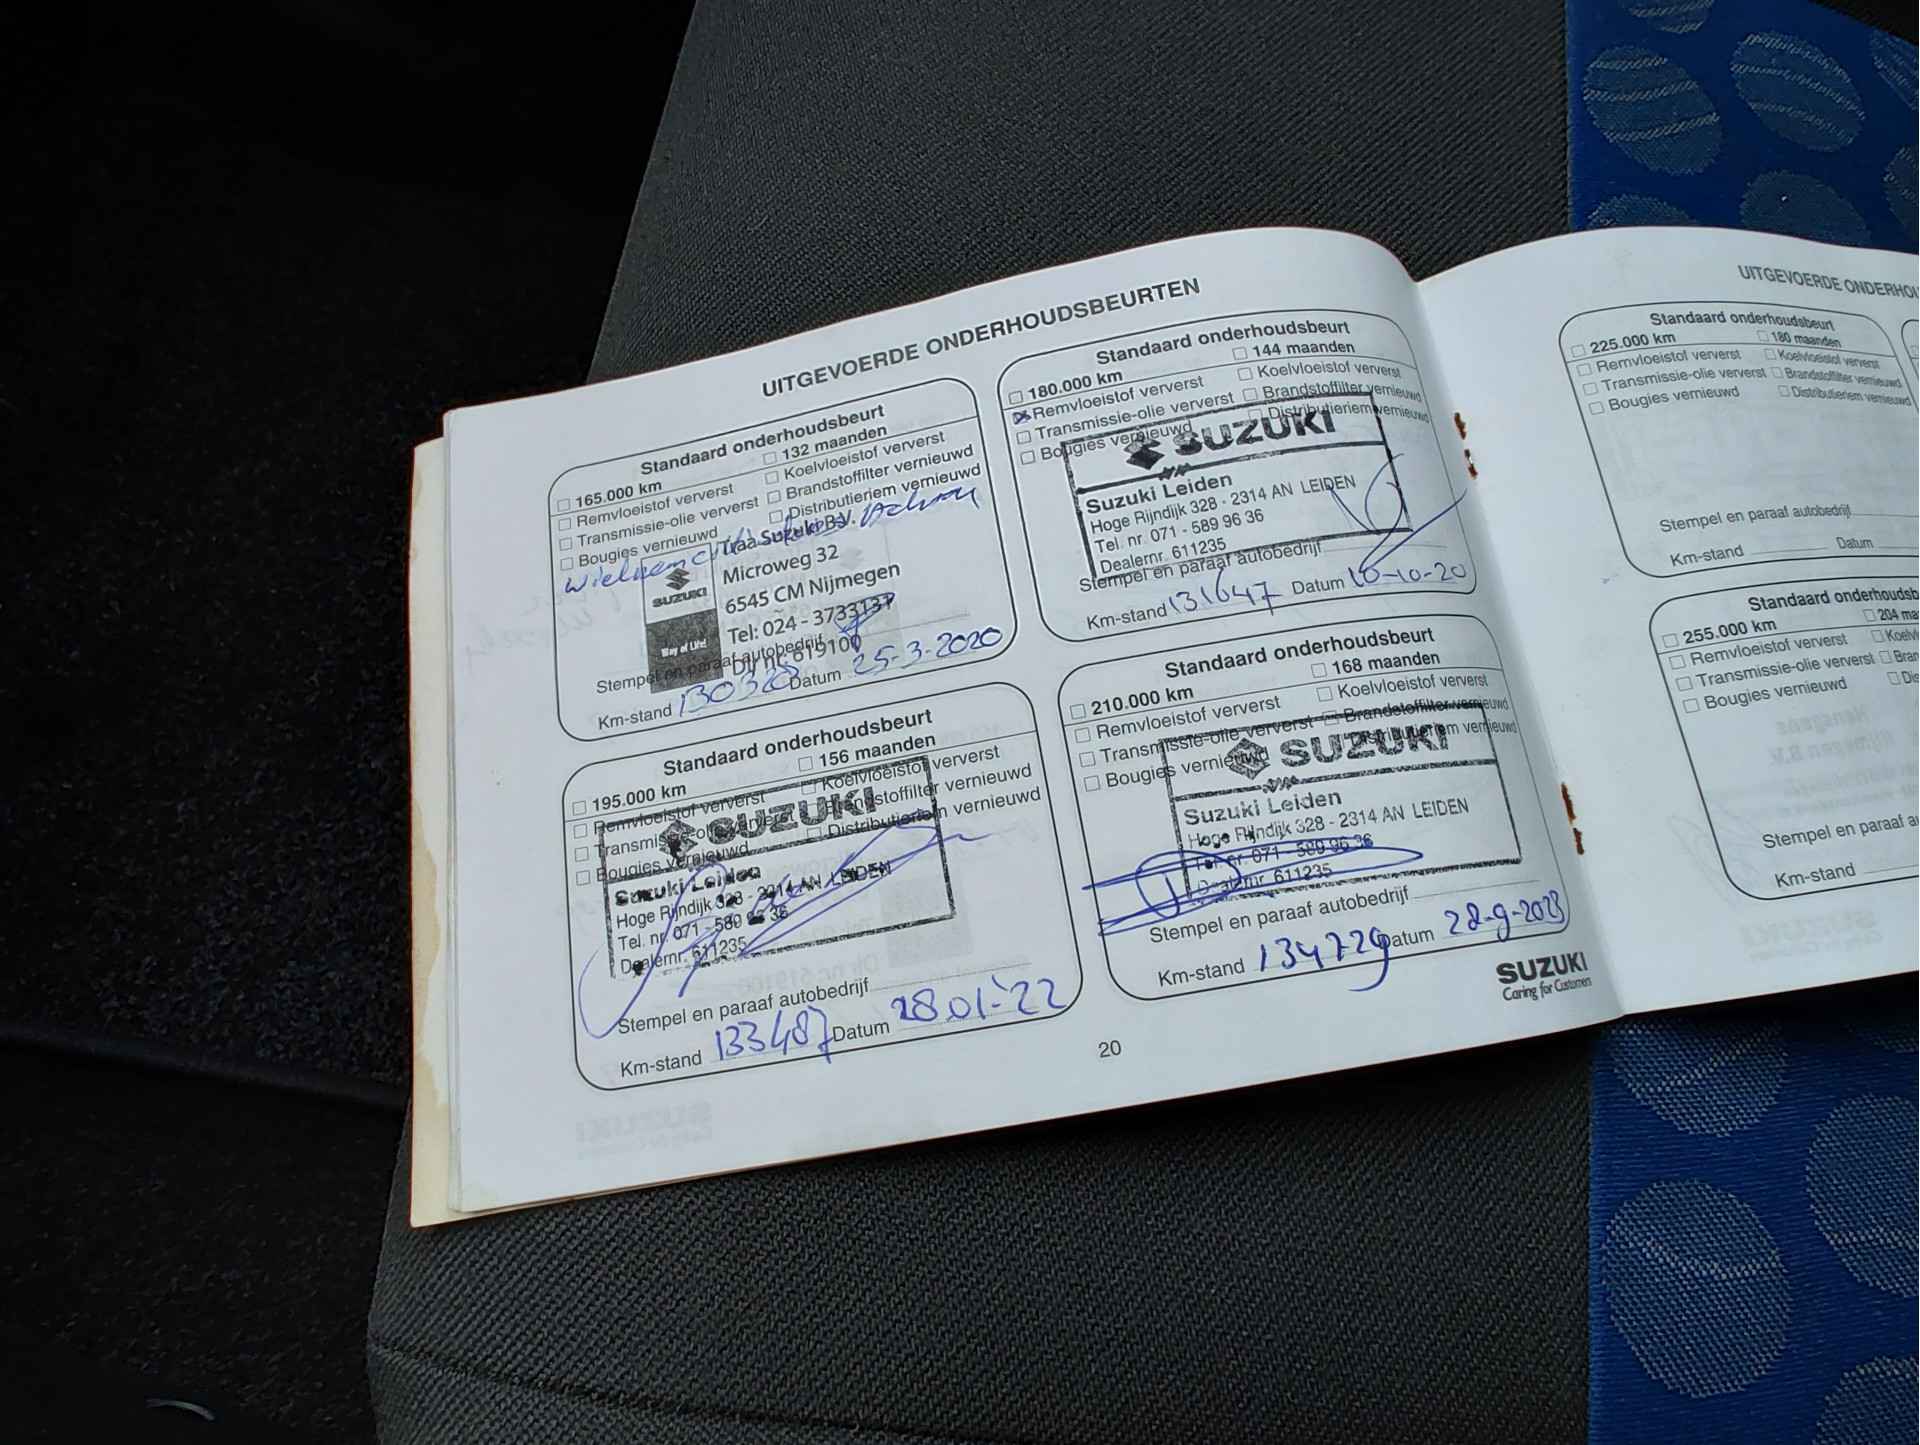 UITGEVOERDE ONDERHOUDSBEURTEN
Standaard onderhoudsbeurt
165.000 km 132 maanden
Remvloeistof ververst Koelvloeistof ververst
Transmissie-olie ververst Brandstoffilter vernieuwd
Bougies vernieuwd Distributieriem vernieuwd
Traa Suzuki B.V.
Microweg 32
6545 CM Nijmegen
SUZUKI
Tel: 024 - 3733137
Way of Life!
Dlr nr. 619100
Stempel en paraaf autobedrijf
Km-stand 130328 Datum 25-3-2020
Standaard onderhoudsbeurt
180.000 km 144 maanden
Remvloeistof ververst Koelvloeistof ververst
Transmissie-olie ververst Brandstoffilter vernieuwd
Bougies vernieuwd Distributieriem vernieuwd
SUZUKI
Suzuki Leiden
Hoge Rijndijk 328 - 2314 AN LEIDEN
Tel. nr. 071 - 589 96 36
Dealernr. 611235
Stempel en paraaf autobedrijf
Km-stand 131647 Datum 10-10-20
Standaard onderhoudsbeurt
195.000 km 156 maanden
Remvloeistof ververst Koelvloeistof ververst
Transmissie-olie ververst Brandstoffilter vernieuwd
Bougies vernieuwd Distributieriem vernieuwd
SUZUKI
Suzuki Leiden
Hoge Rijndijk 328 - 2314 AN LEIDEN
Tel. nr. 071 - 589 96 36
Dealernr. 611235
Stempel en paraaf autobedrijf
Km-stand 133487 Datum 28.01-'22
Standaard onderhoudsbeurt
210.000 km 168 maanden
Remvloeistof ververst Koelvloeistof ververst
Transmissie-olie ververst Brandstoffilter vernieuwd
Bougies vernieuwd Distributieriem vernieuwd
SUZUKI
Suzuki Leiden
Hoge Rijndijk 328 - 2314 AN LEIDEN
Tel. nr. 071 - 589 96 36
Dealernr. 611235
Stempel en paraaf autobedrijf
Km-stand 134729 Datum 28-9-2023
SUZUKI
Caring for Customers
20
UITGEVOERDE
Standaard onderhoudsbeurt
225.000 km 180 maanden
Remvloeistof ververst Koelvloeistof ververst
Transmissie-olie ververst Brandstoffilter vernieuwd
Bougies vernieuwd Distributieriem vernieuwd
Stempel en paraaf autobedrijf
Km-stand Datum
Standaard
255.000 km 204
Remvloeistof ververst
Transmissie-olie ververst
Bougies vernieuwd
Stempel en paraaf
Km-stand